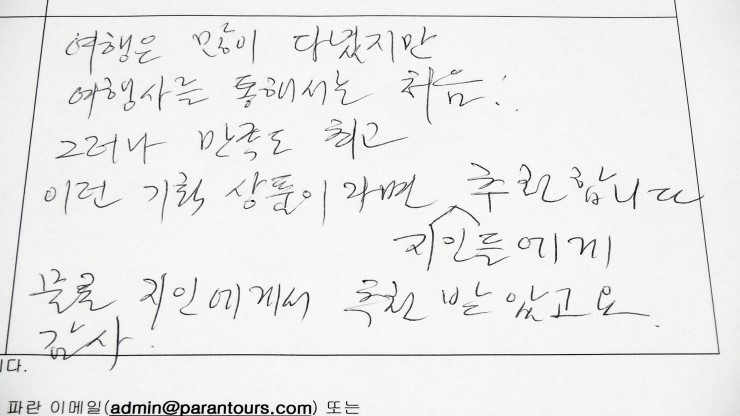 여행은 많이 다녔지만
여행사를 통해서는 처음..
그러나 만족도 최고
이런 기획 상품이라면 추천합니다
지인들에게
물론 지인에게서 추천 받았고요.
감사.
니다.
파란 이메일(admin@parantours.com) 또는